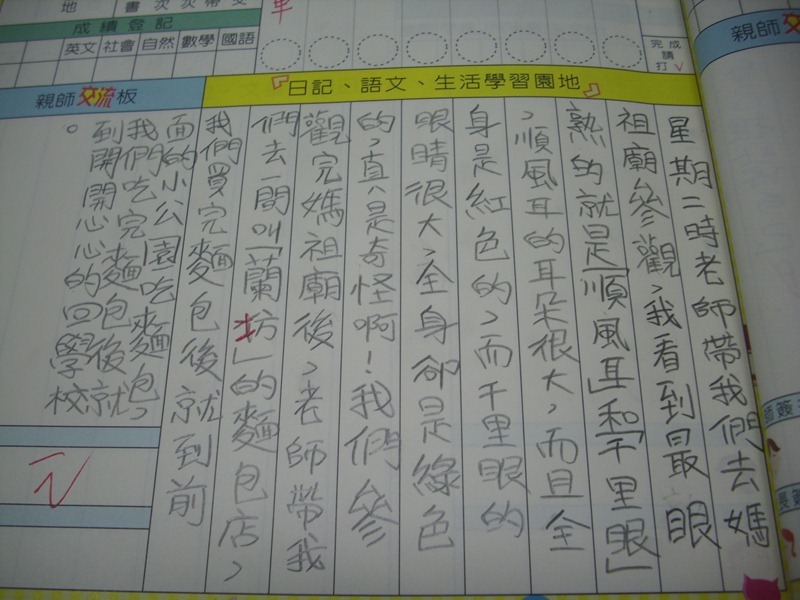 地
書
次
次
帶
交
成績登記
英文 社會 自然 數學 國語
完成
請
打✓
親師交流板
『日記、語文、生活學習園地』
親師交
星期二時老師帶我們去媽
祖廟參觀,我看到最眼
熟的就是「順風耳」和「千里眼」
,順風耳的耳朵很大,而且全
身是紅色的,而千里眼的
眼睛很大,全身卻是綠色
的,真是奇怪啊!我們參
觀完媽祖廟後,老師帶我
們去一間叫「蘭坊」的麵包店,
我們買完麵包後就到前
面的小公園吃麵包,
我們吃完麵包後就
到開開心心的回學校
。
師簽
長簽